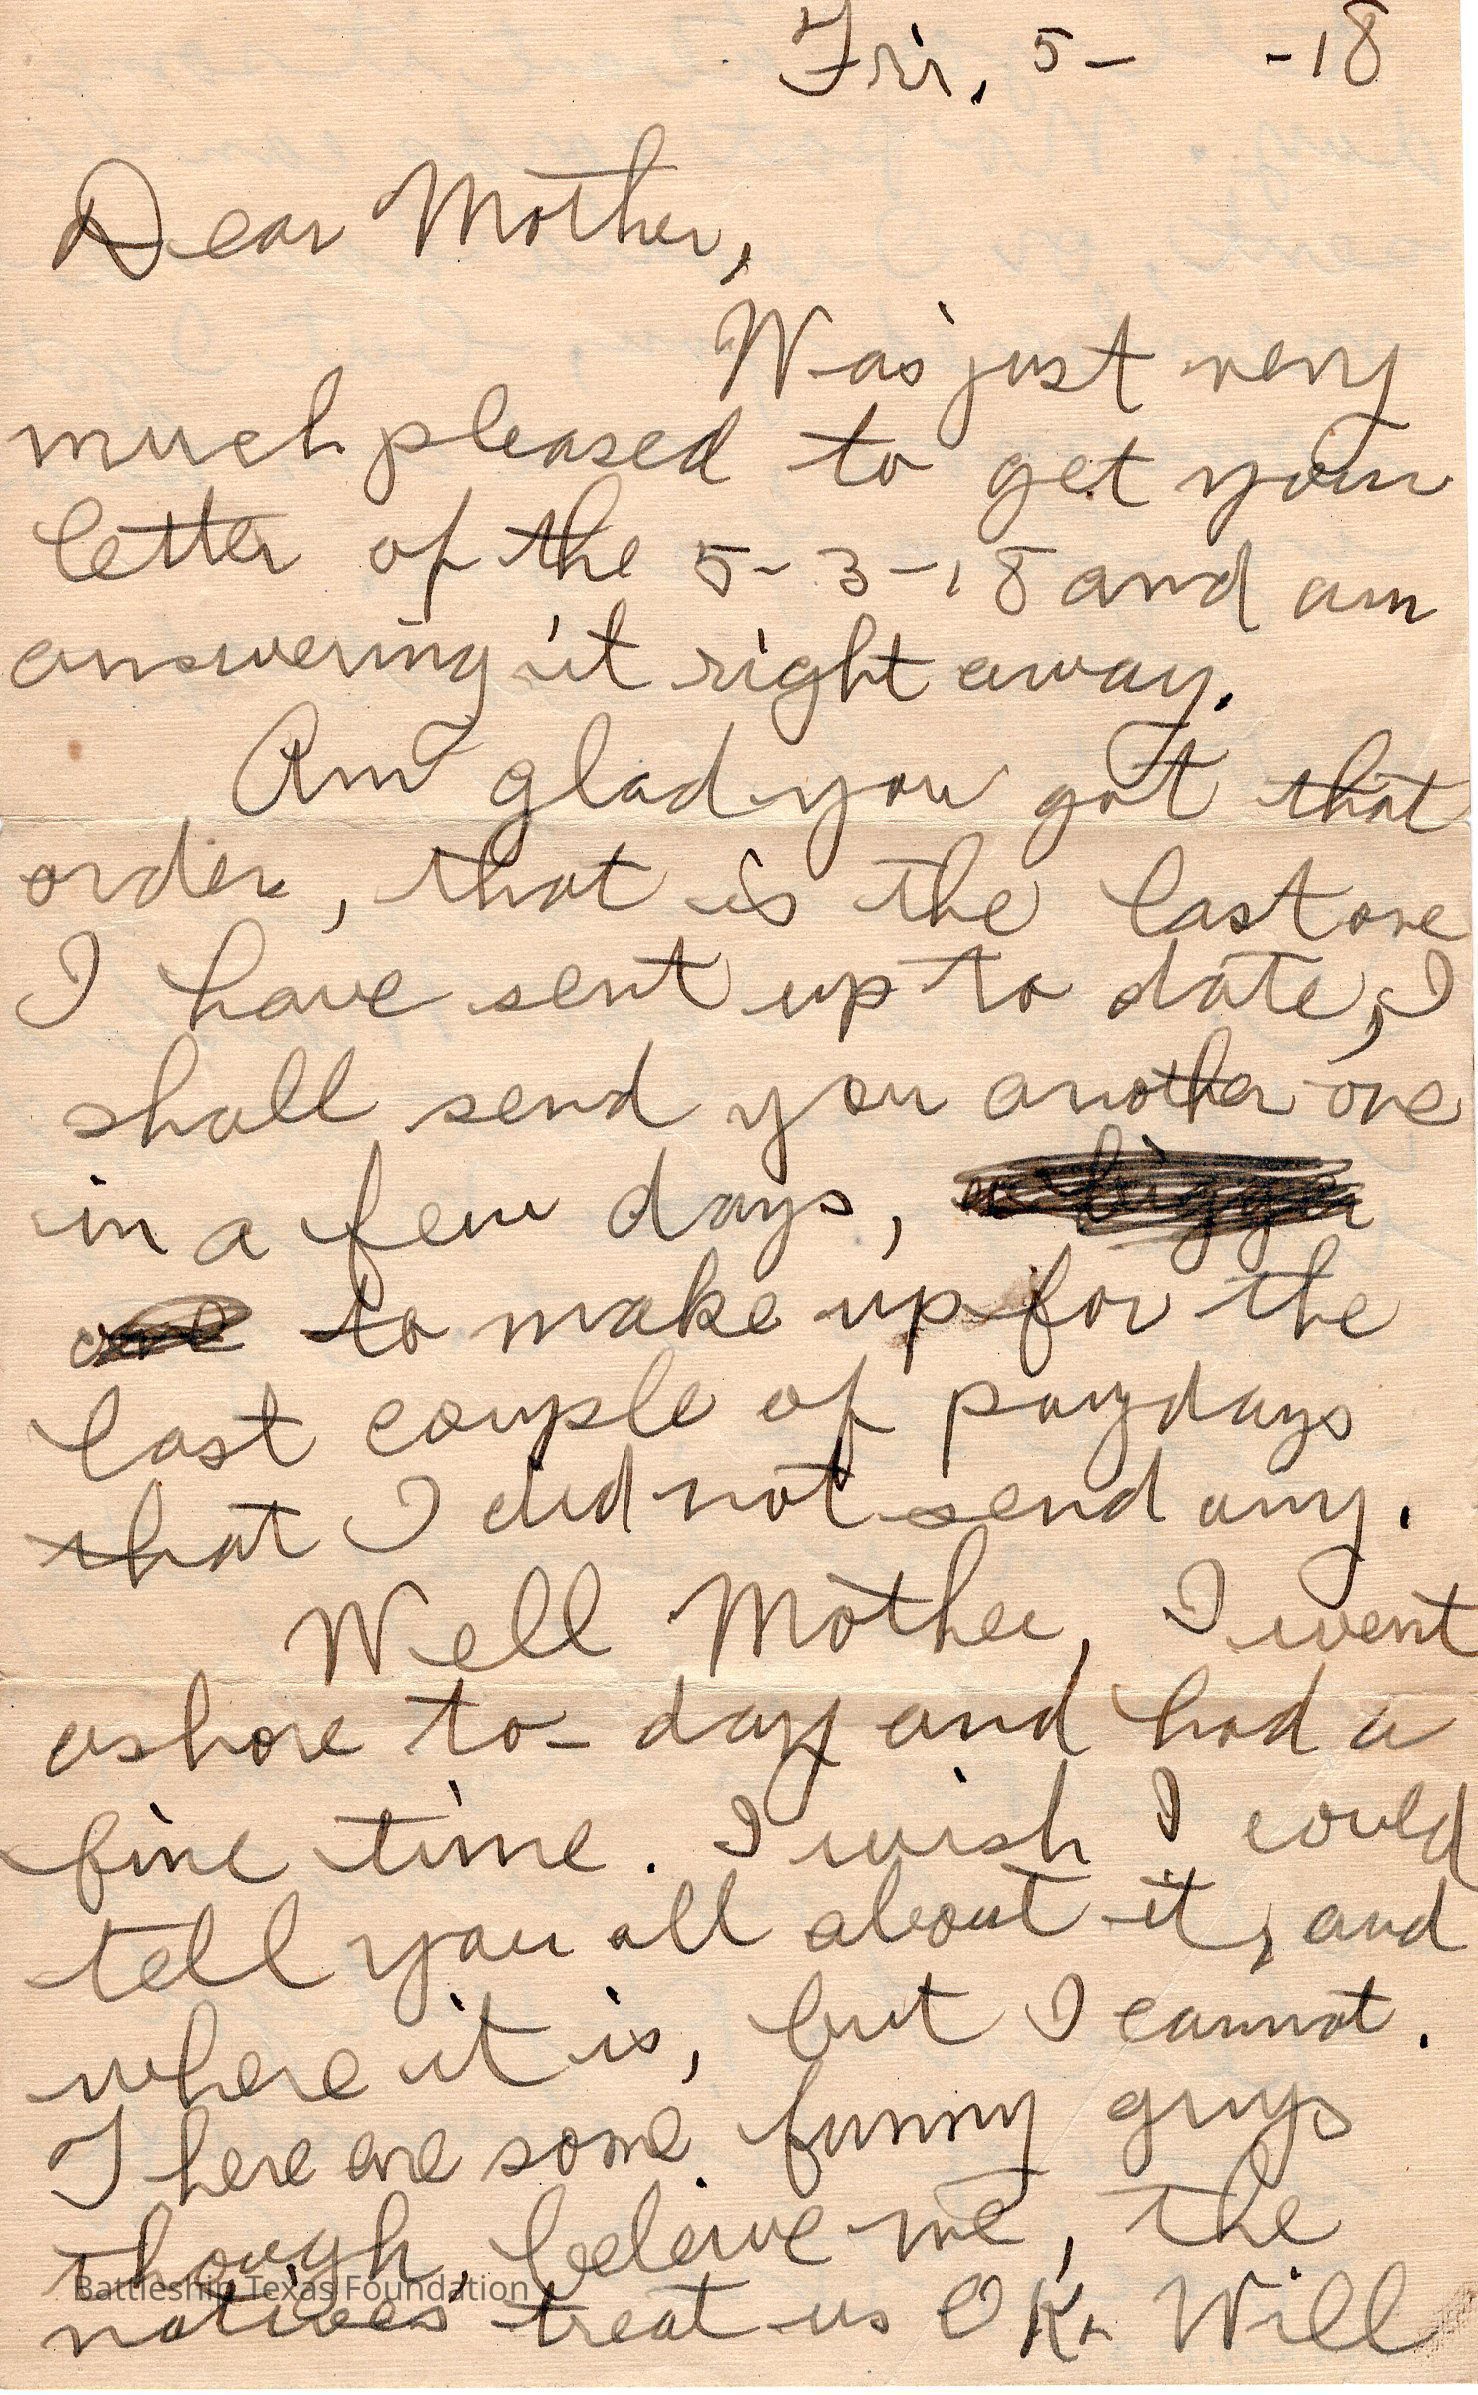 Fri, 5- -18
Dear Mother,
Was just very
much pleased to get your
letter of the 5-3-18 and am
answering it right away.
Am glad you got that
order, that is the last one
I have sent up to date, I
shall send you another one
in a few days, a bigger
one to make up for the
last couple of paydays
that I did not send any.
Well Mother, I went
ashore to-day and had a
fine time. I wish I could
tell you all about it, and
where it is, but I cannot.
There are some funny guys
though, beleive me, the
Battleship Texas Foundation
natives treat us OK. Will